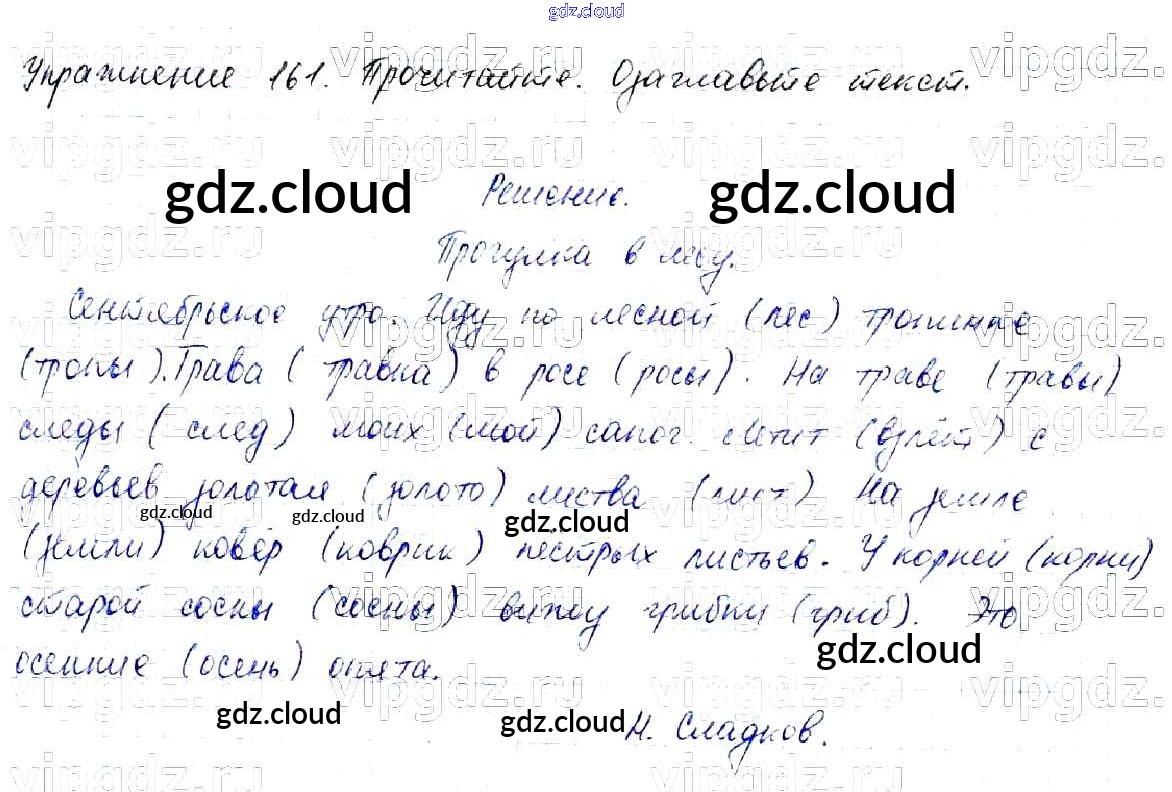 gdz.cloud
Упражнение 161. Прочитайте. Озаглавьте текст.
gdz.cloud Решение. gdz.cloud
Прогулка в лесу.
Сентябрьское утро. Иду по лесной (лес) тропинке
(тропы). Трава (травка) в росе (росы). На траве (травы)
следы (след) моих (мой) сапог. Летит (взлёт) с
деревьев золотая (золото) листва (лист). На земле
gdz.cloud gdz.cloud gdz.cloud
(земли) ковёр (коврик) пёстрых листьев. У корней (корни)
старой сосны (сосны) вижу грибки (гриб). Это
gdz.cloud
осенние (осень) опята.
gdz.cloud gdz.cloud
Н. Сладков.
vipgdz.ru